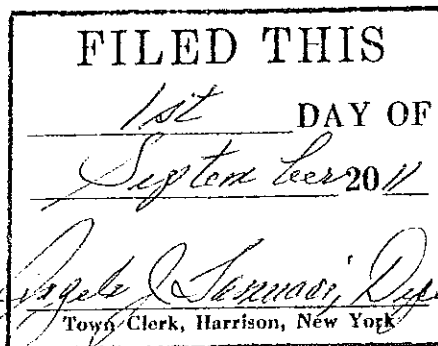 FILED THIS
1st DAY OF
September 2011
Angelo J.
Town Clerk, Harrison, New York